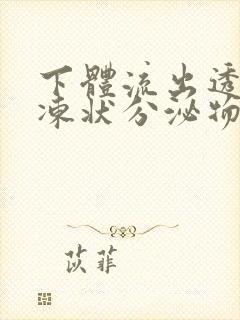 下體流出透
凍狀分泌物
苡菲